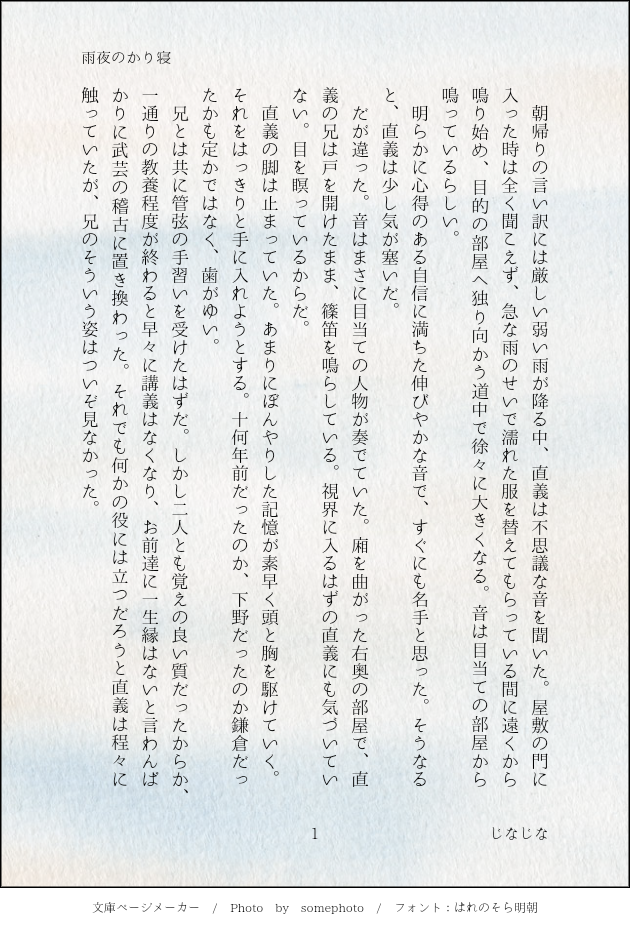 雨夜のかり寝
　朝帰りの言い訳には厳しい弱い雨が降る中、直義は不思議な音を聞いた。屋敷の門に
入った時は全く聞こえず、急な雨のせいで濡れた服を替えてもらっている間に遠くから
鳴り始め、目的の部屋へ独り向かう道中で徐々に大きくなる。音は目当ての部屋から
鳴っているらしい。
　明らかに心得のある自信に満ちた伸びやかな音で、すぐにも名手と思った。そうなる
と、直義は少し気が塞いだ。
　だが違った。音はまさに目当ての人物が奏でていた。廂を曲がった右奥の部屋で、直
義の兄は戸を開けたまま、篠笛を鳴らしている。視界に入るはずの直義にも気づいてい
ない。目を瞑っているからだ。
　直義の脚は止まっていた。あまりにぼんやりした記憶が素早く頭と胸を駆けていく。
それをはっきりと手に入れようとする。十何年前だったのか、下野だったのか鎌倉だっ
たかも定かではなく、歯がゆい。
　兄とは共に管弦の手習いを受けたはずだ。しかし二人とも覚えの良い質だったからか、
一通りの教養程度が終わると早々に講義はなくなり、お前達に一生縁はないと言わんば
かりに武芸の稽古に置き換わった。それでも何かの役には立つだろうと直義は程々に
触っていたが、兄のそういう姿はついぞ見なかった。
1
じなじな
文庫ページメーカー　/　Photo　by　somephoto　/　フォント：はれのそら明朝